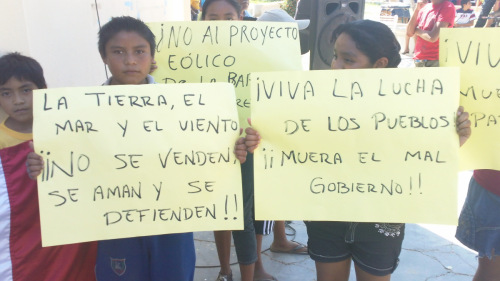 ¡NO AL PROYECTO
EÓLICO
DE LA BAR
LA TIERRA, EL
MAR Y EL VIENTO
¡¡NO SE VENDEN,
SE AMAN Y SE
DEFIENDEN!!
¡VIVA LA LUCHA
DE LOS PUEBLOS
¡¡MUERA EL MAL
GOBIERNO!!
¡VIV
MUE